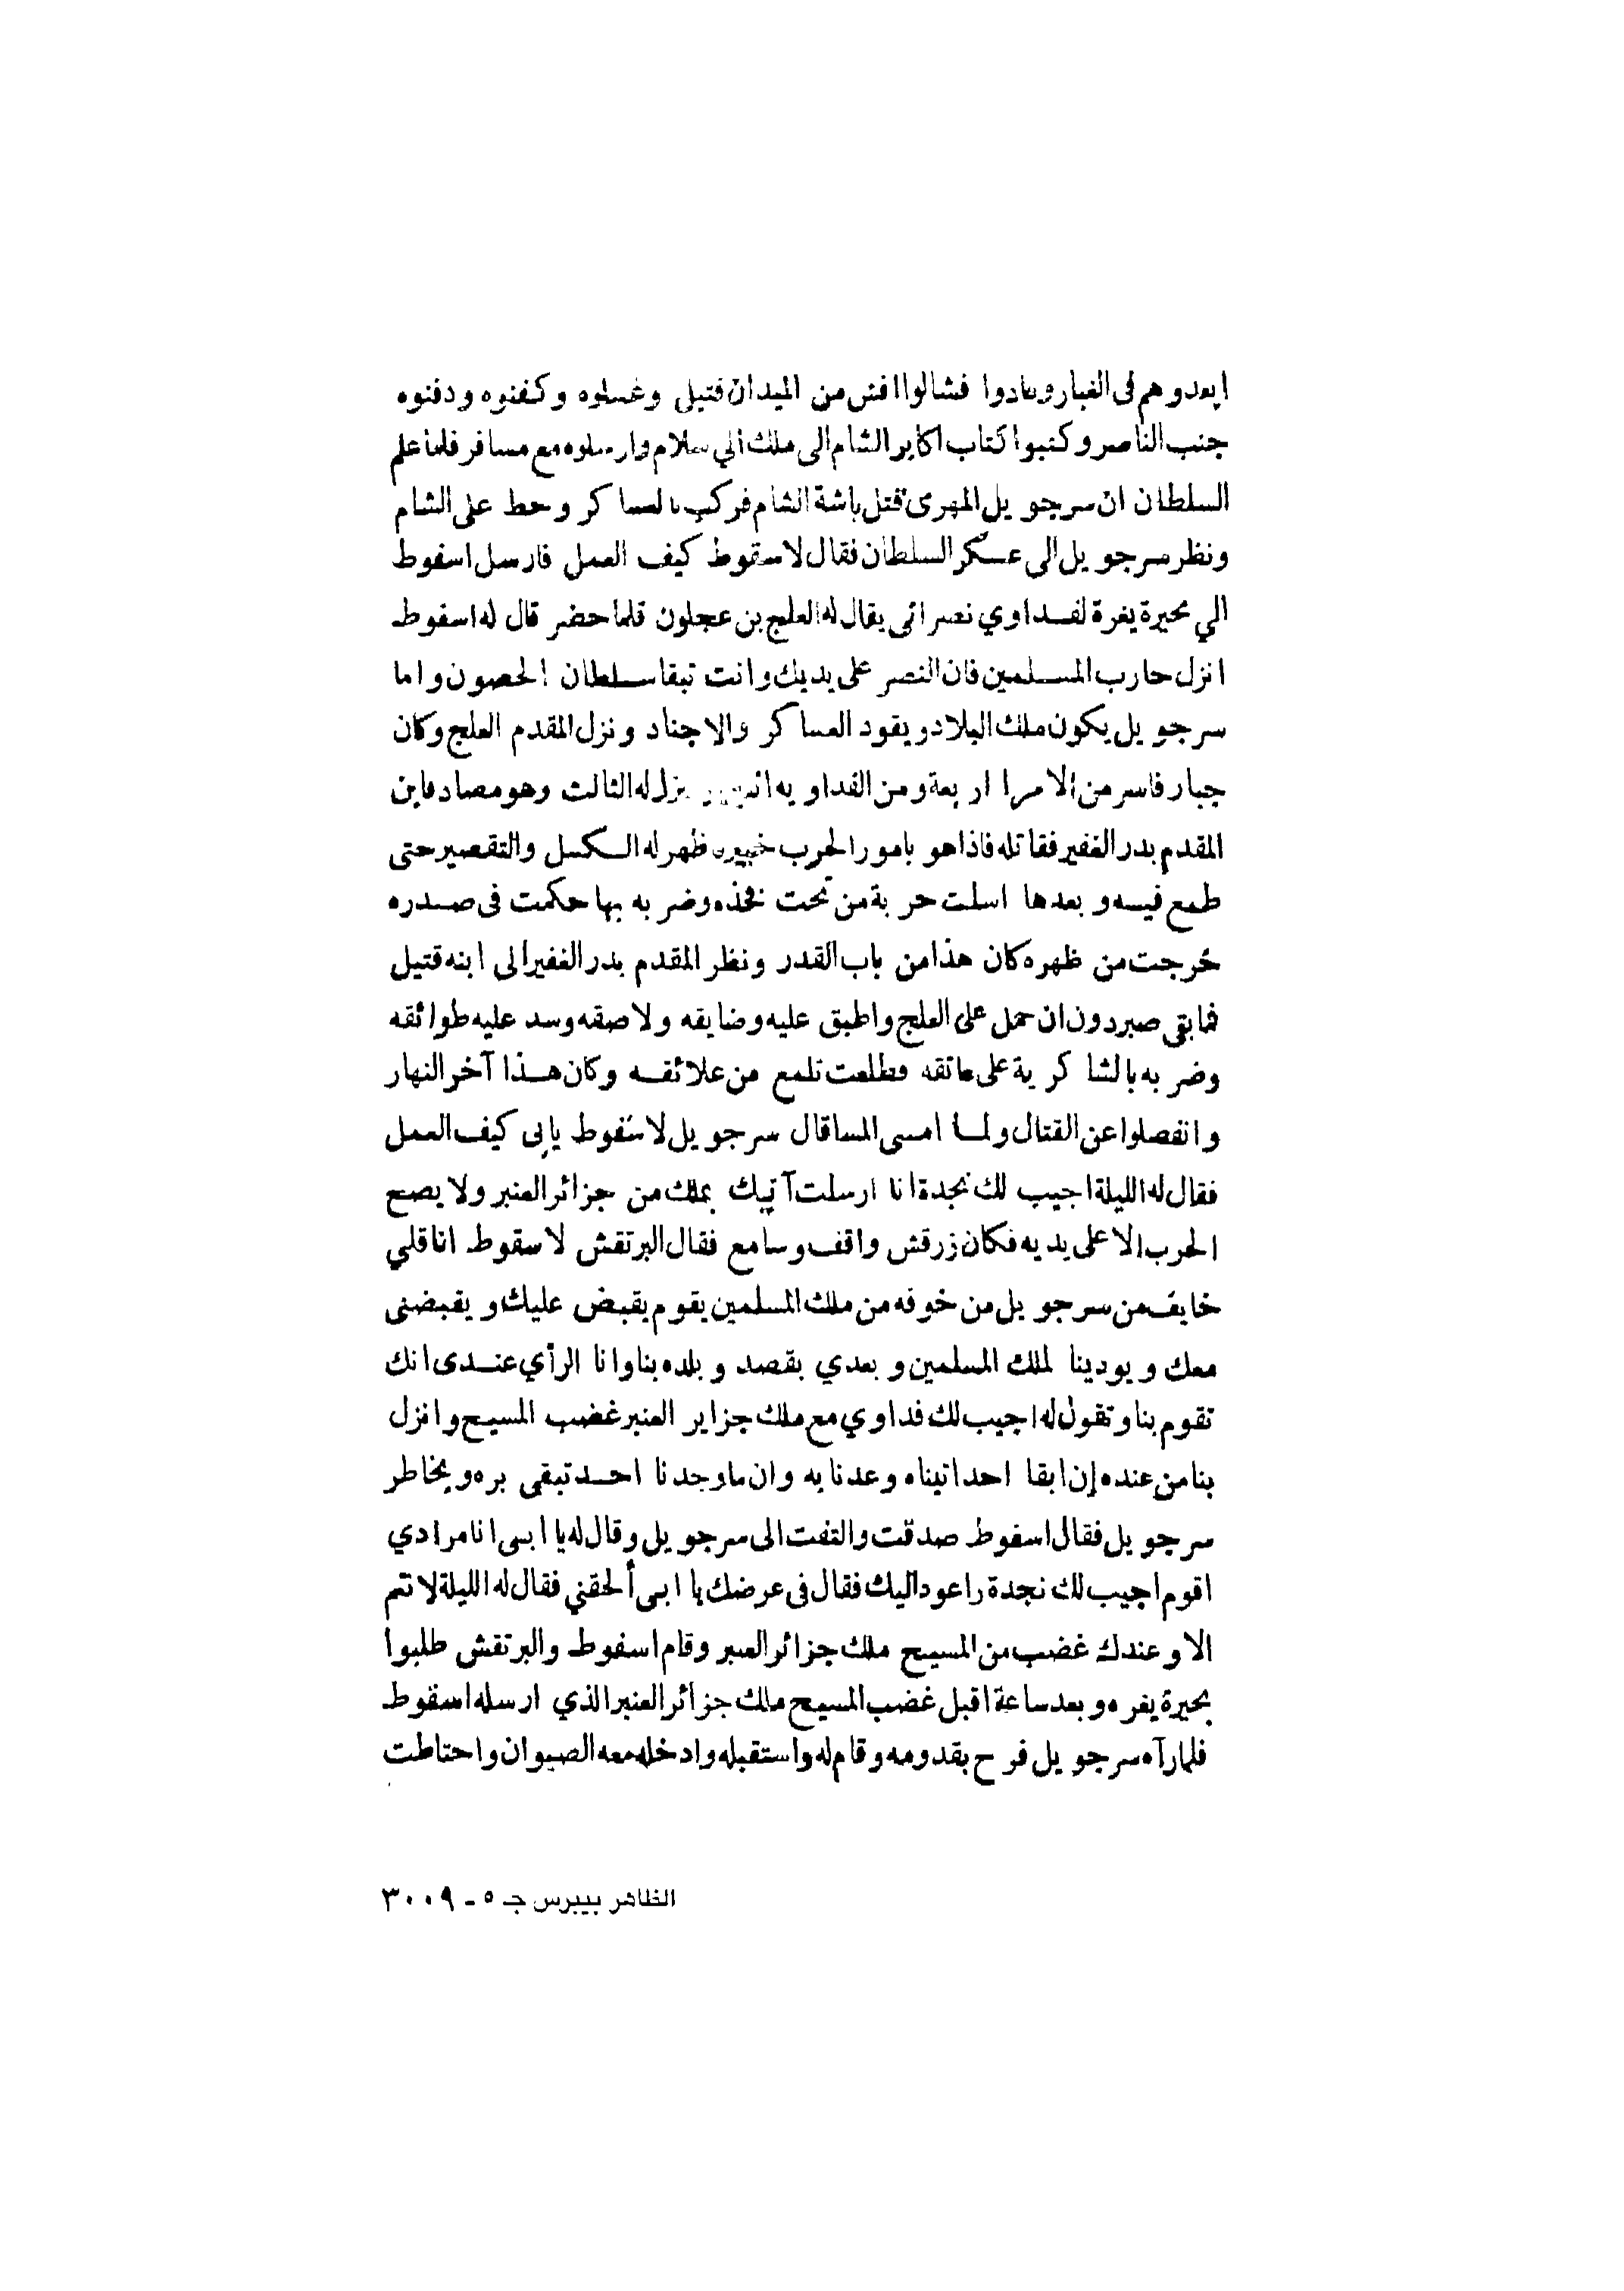 ابعدوهم فى الغبار وعادوا فشالوا افش من الميدان قتيل وغسلوه وكفنوه ودفنوه
جنب الناصر وكتبوا كتاب اكابر الشام الى ملك الي سلام وارسلوه مع مسافر فلما علم
السلطان ان سرجويل المهرى قتل باشة الشام فركب بالعساكر وحط على الشام
ونظر سرجويل الى عسكر السلطان فقال لاسقوط كيف العمل فارسل اسفوط
الي بحيرة يغرة لفداوي نصرانى يقال له العلج بن عجلون فلما حضر قال له اسفوط
انزل حارب المسلمين فان النصر على يديك وانت تبقا سلطان الحصون واما
سرجويل يكون ملك البلاد ويقود العساكر والاجناد ونزل المقدم العلج وكان
جبار فاسر من الامرا اربعة ومن الفداويه نزل له الثالث وهو مصادف ابن
المقدم بدر الغفير فقاتله فاذا هو بامور الحرب خبير ظهر له الكسل والتقصير حتى
طمع فيه وبعدها اسلت حربة من تحت فخذه وضربه بها حكمت فى صدره
خرجت من ظهره كان هذا من باب القدر ونظر المقدم بدر الغفير الى ابنه قتيل
فما بقى صبر دون ان حمل على العلج واطبق عليه وضايقه ولاصقه وسد عليه طوائقه
وضربه بالشاكرية على عاتقه فطلعت تلمع من علائقه وكان هذا آخر النهار
وانفصلوا عن القتال ولما امسى المسا قال سرجويل لاسفوط يابى كيف العمل
فقال له الليلة اجيب لك نجدة انا ارسلت آتيك بملك من جزائر العنبر ولا يصح
الحرب الا على يديه فكان زرقش واقف وسامع فقال البرتقش لاسقوط انا قلبي
خايف من سرجويل من خوفه من ملك المسلمين يقوم يقبض عليك ويقبضنى
معك ويودينا لملك المسلمين وبعدي بقصد وبلده بنا وانا الرأي عندى انك
تقوم بنا وتقول له اجيب لك فداوي مع ملك جزاير العنبر غضب المسيح وانزل
بنا من عنده إن ابقا احد اتيناه وعدنا به وان ما وجدنا احد تبقى بره ويخاطر
سرجويل فقال اسفوط صدقت والتفت الى سرجويل وقال له يا ابى انا مرادي
اقوم اجيب لك نجدة راعود اليك فقال فى عرضك يا ابى ألحقني فقال له الليلة لا تتم
الا وعندك غضب من المسيح ملك جزائر العنبر وقام اسفوط والبرتقش طلبوا
بحيرة يغره وبعد ساعة اقبل غضب المسيح ملك جزائر العنبر الذي ارسله اسقوط
فلما رآه سرجويل فرح بقدومه وقام له واستقبله وادخله معه الصيوان واحتاطت
الظاهر بيبرس جـ ٥ - ٣٠٠٩